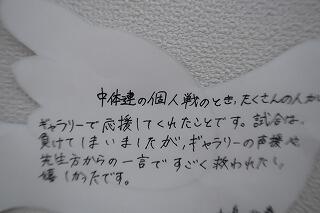 中体連の個人戦のとき，たくさんの人が
ギャラリーで応援してくれたことです。試合は，
負けてしまいましたが，ギャラリーの声援や
先生方からの一言ですごく救われたし，
嬉しかったです。